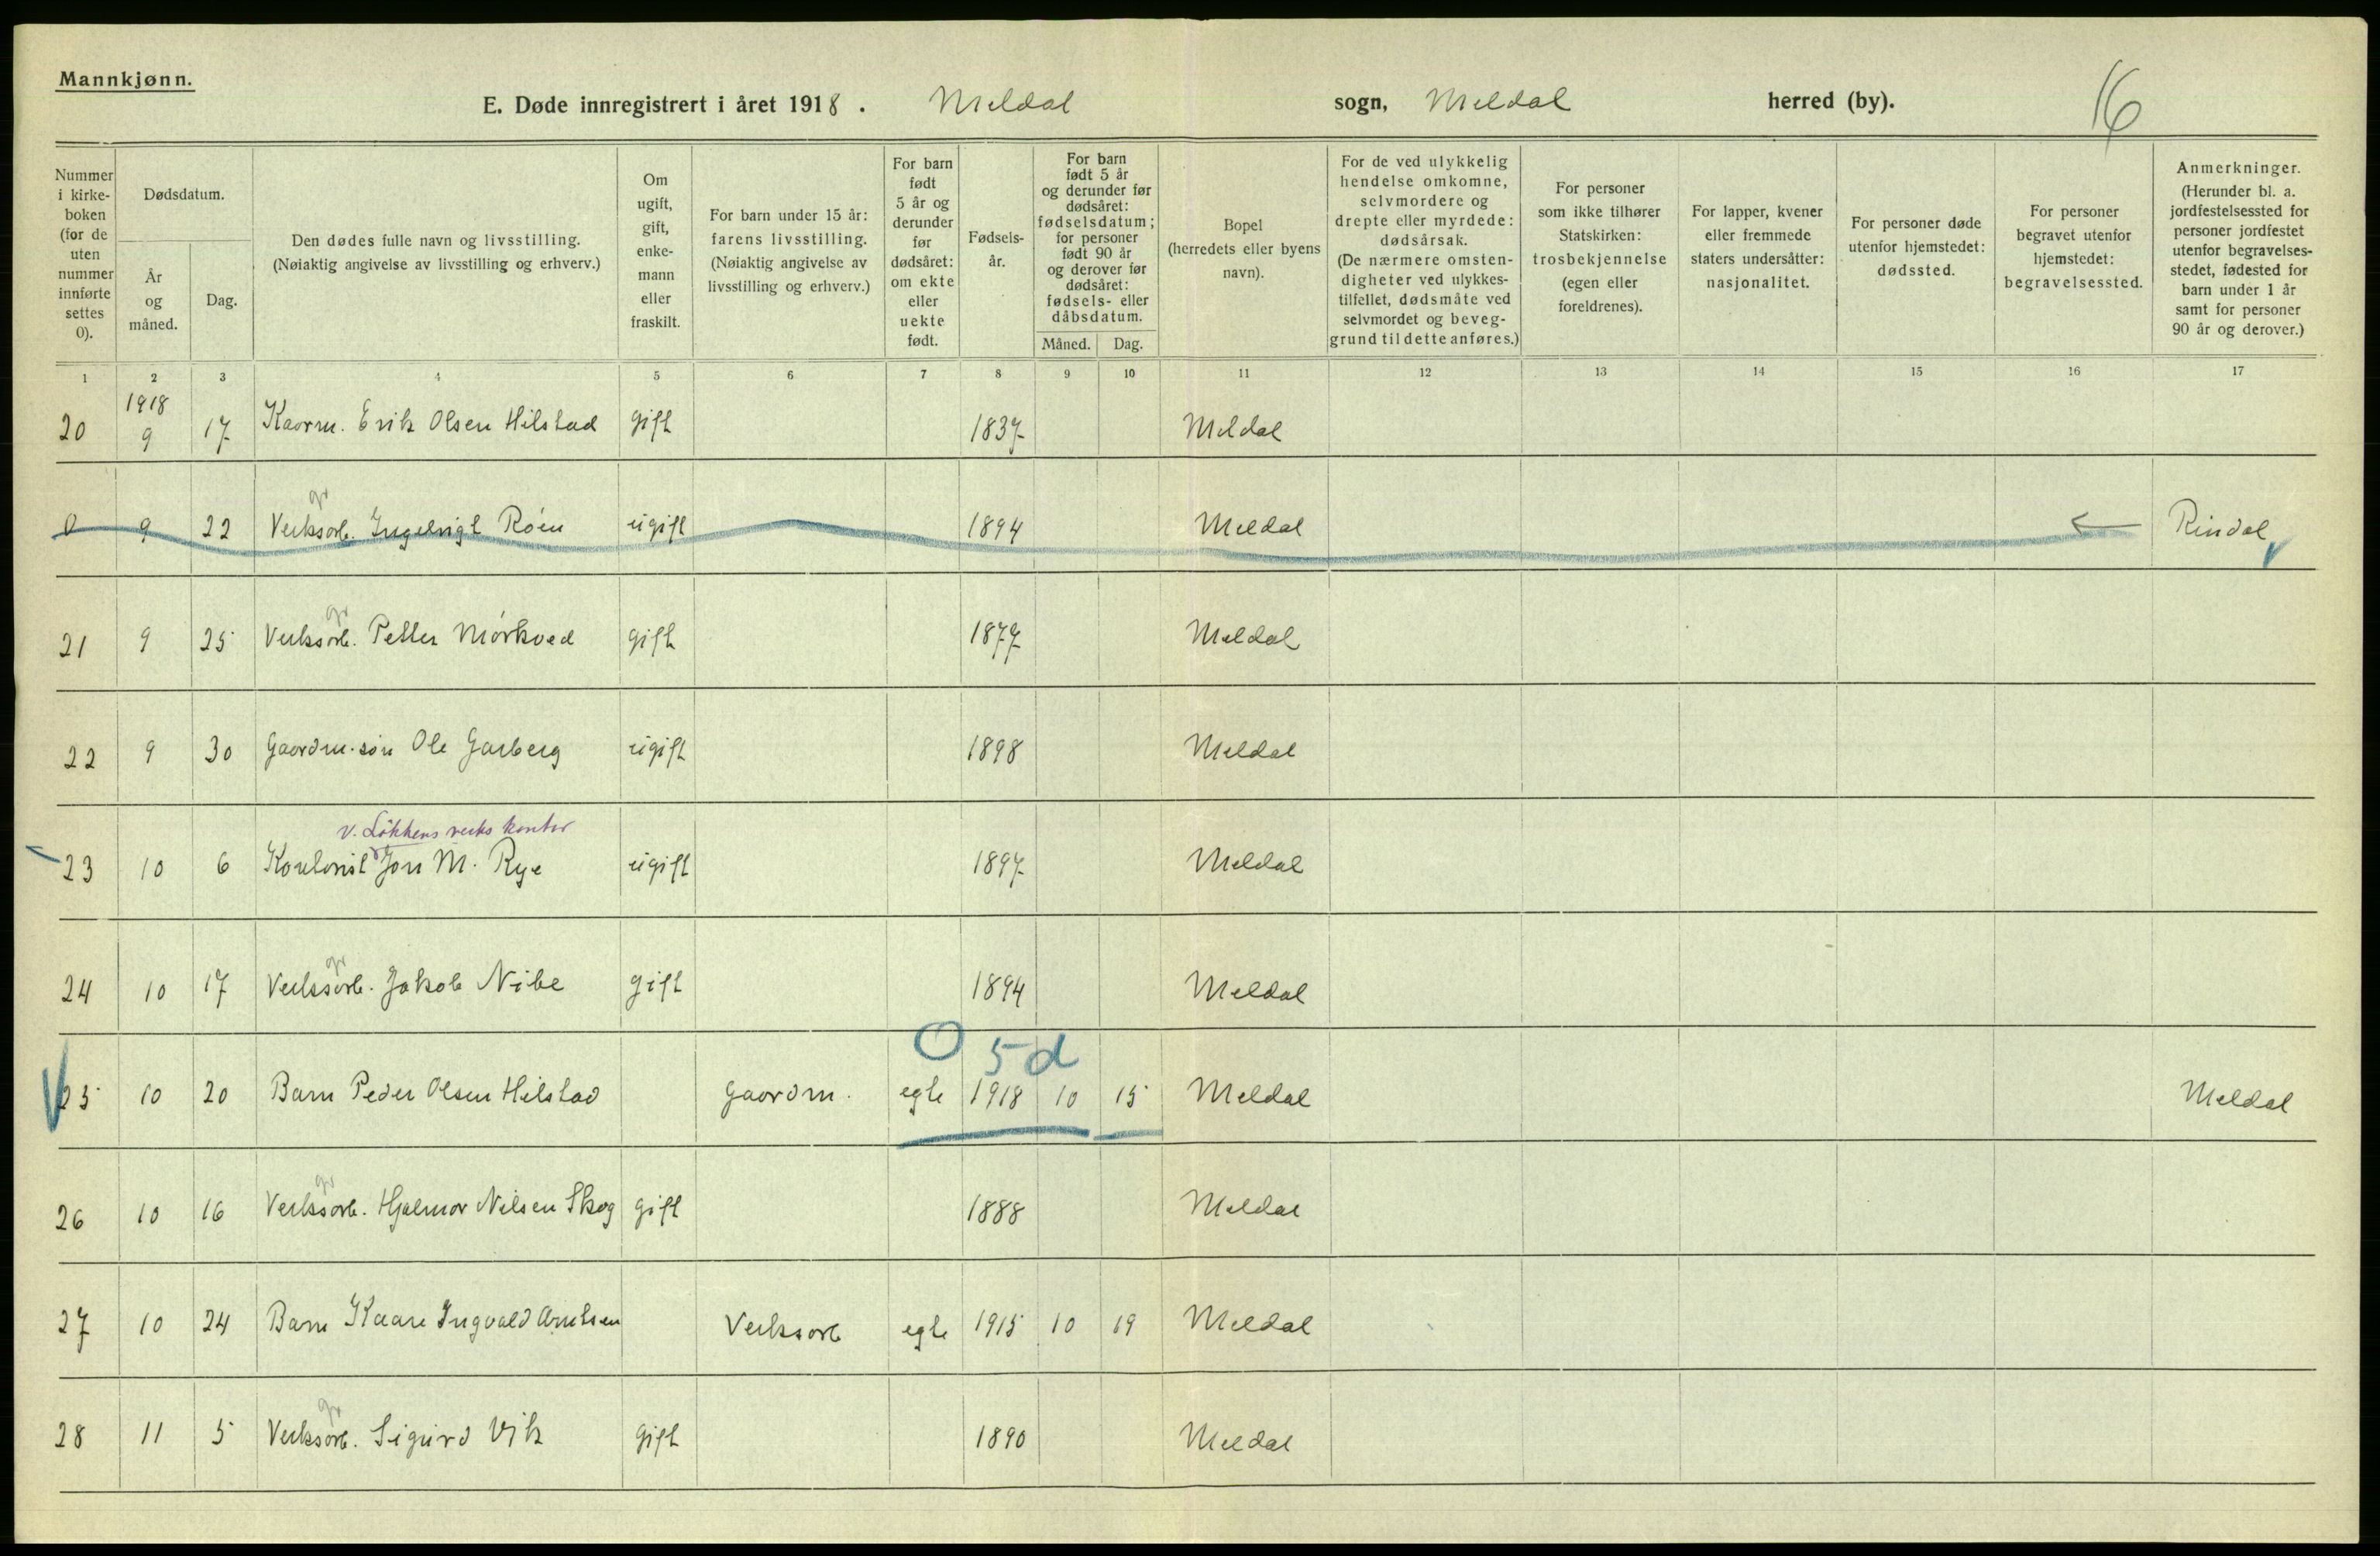 Mannkjønn.
E. Døde innregistrert i året 1918. Meldal sogn, Meldal herred (by). 16
Nummer i kirke- boken (for de uten nummer innførte settes 0).
Dødsdatum.
År og måned.
Dag.
Den dødes fulle navn og livsstilling. (Nøiaktig angivelse av livsstilling og erhverv.)
Om ugift, gift, enke- mann eller fraskilt.
For barn under 15 år: farens livsstilling. (Nøiaktig angivelse av livsstilling og erhverv.)
For barn født 5 år og derunder før dødsåret: om ekte eller uekte født.
Fødsels- år.
For barn født 5 år og derunder før dødsåret: fødselsdatum; for personer født 90 år og derover før dødsåret: fødsels- eller dåbsdatum.
Måned. Dag.
Bopel (herredets eller byens navn).
For de ved ulykkelig hendelse omkomne, selvmordere og drepte eller myrdede: dødsårsak. (De nærmere omsten- digheter ved ulykkes- tilfellet, dødsmåte ved selvmordet og beveg- grund til dette anføres.)
For personer som ikke tilhører Statskirken: trosbekjennelse (egen eller foreldrenes).
For lapper, kvener eller fremmede staters undersåtter: nasjonalitet.
For personer døde utenfor hjemstedet: dødssted.
For personer begravet utenfor hjemstedet: begravelsessted.
Anmerkninger. (Herunder bl. a. jordfestelsessted for personer jordfestet utenfor begravelses- stedet, fødested for barn under 1 år samt for personer 90 år og derover.)
1 2 3 4 5 6 7 8 9 10 11 12 13 14 15 16 17
1918
20 9 17 Kaarm. Erik Olsen Hilstad gift 1837 Meldal
gr
0 9 22 Verksarb. Ingebrigt Röen ugift 1894 Meldal Rindal
gr
21 9 25 Verksarb. Petter Mörkved gift 1877 Meldal
22 9 30 Gaardm.sön Ole Garberg ugift 1898 Meldal
v. Lökkens verks kontor
23 10 6 Kontorist Jon M. Rye ugift 1897 Meldal
gr
24 10 17 Verksarb. Jakob Nibe gift 1894 Meldal
0 5d
25 10 20 Barn Peder Olsen Hilstad Gaardm. egte 1918 10 15 Meldal Meldal
gr
26 10 16 Verksarb. Hjalmar Nilsen Skog gift 1888 Meldal
27 10 24 Barn Kaare Ingvald Arntsen Verksarb egte 1915 10 19 Meldal
gr
28 11 5 Verksarb. Sigurd Vik gift 1890 Meldal